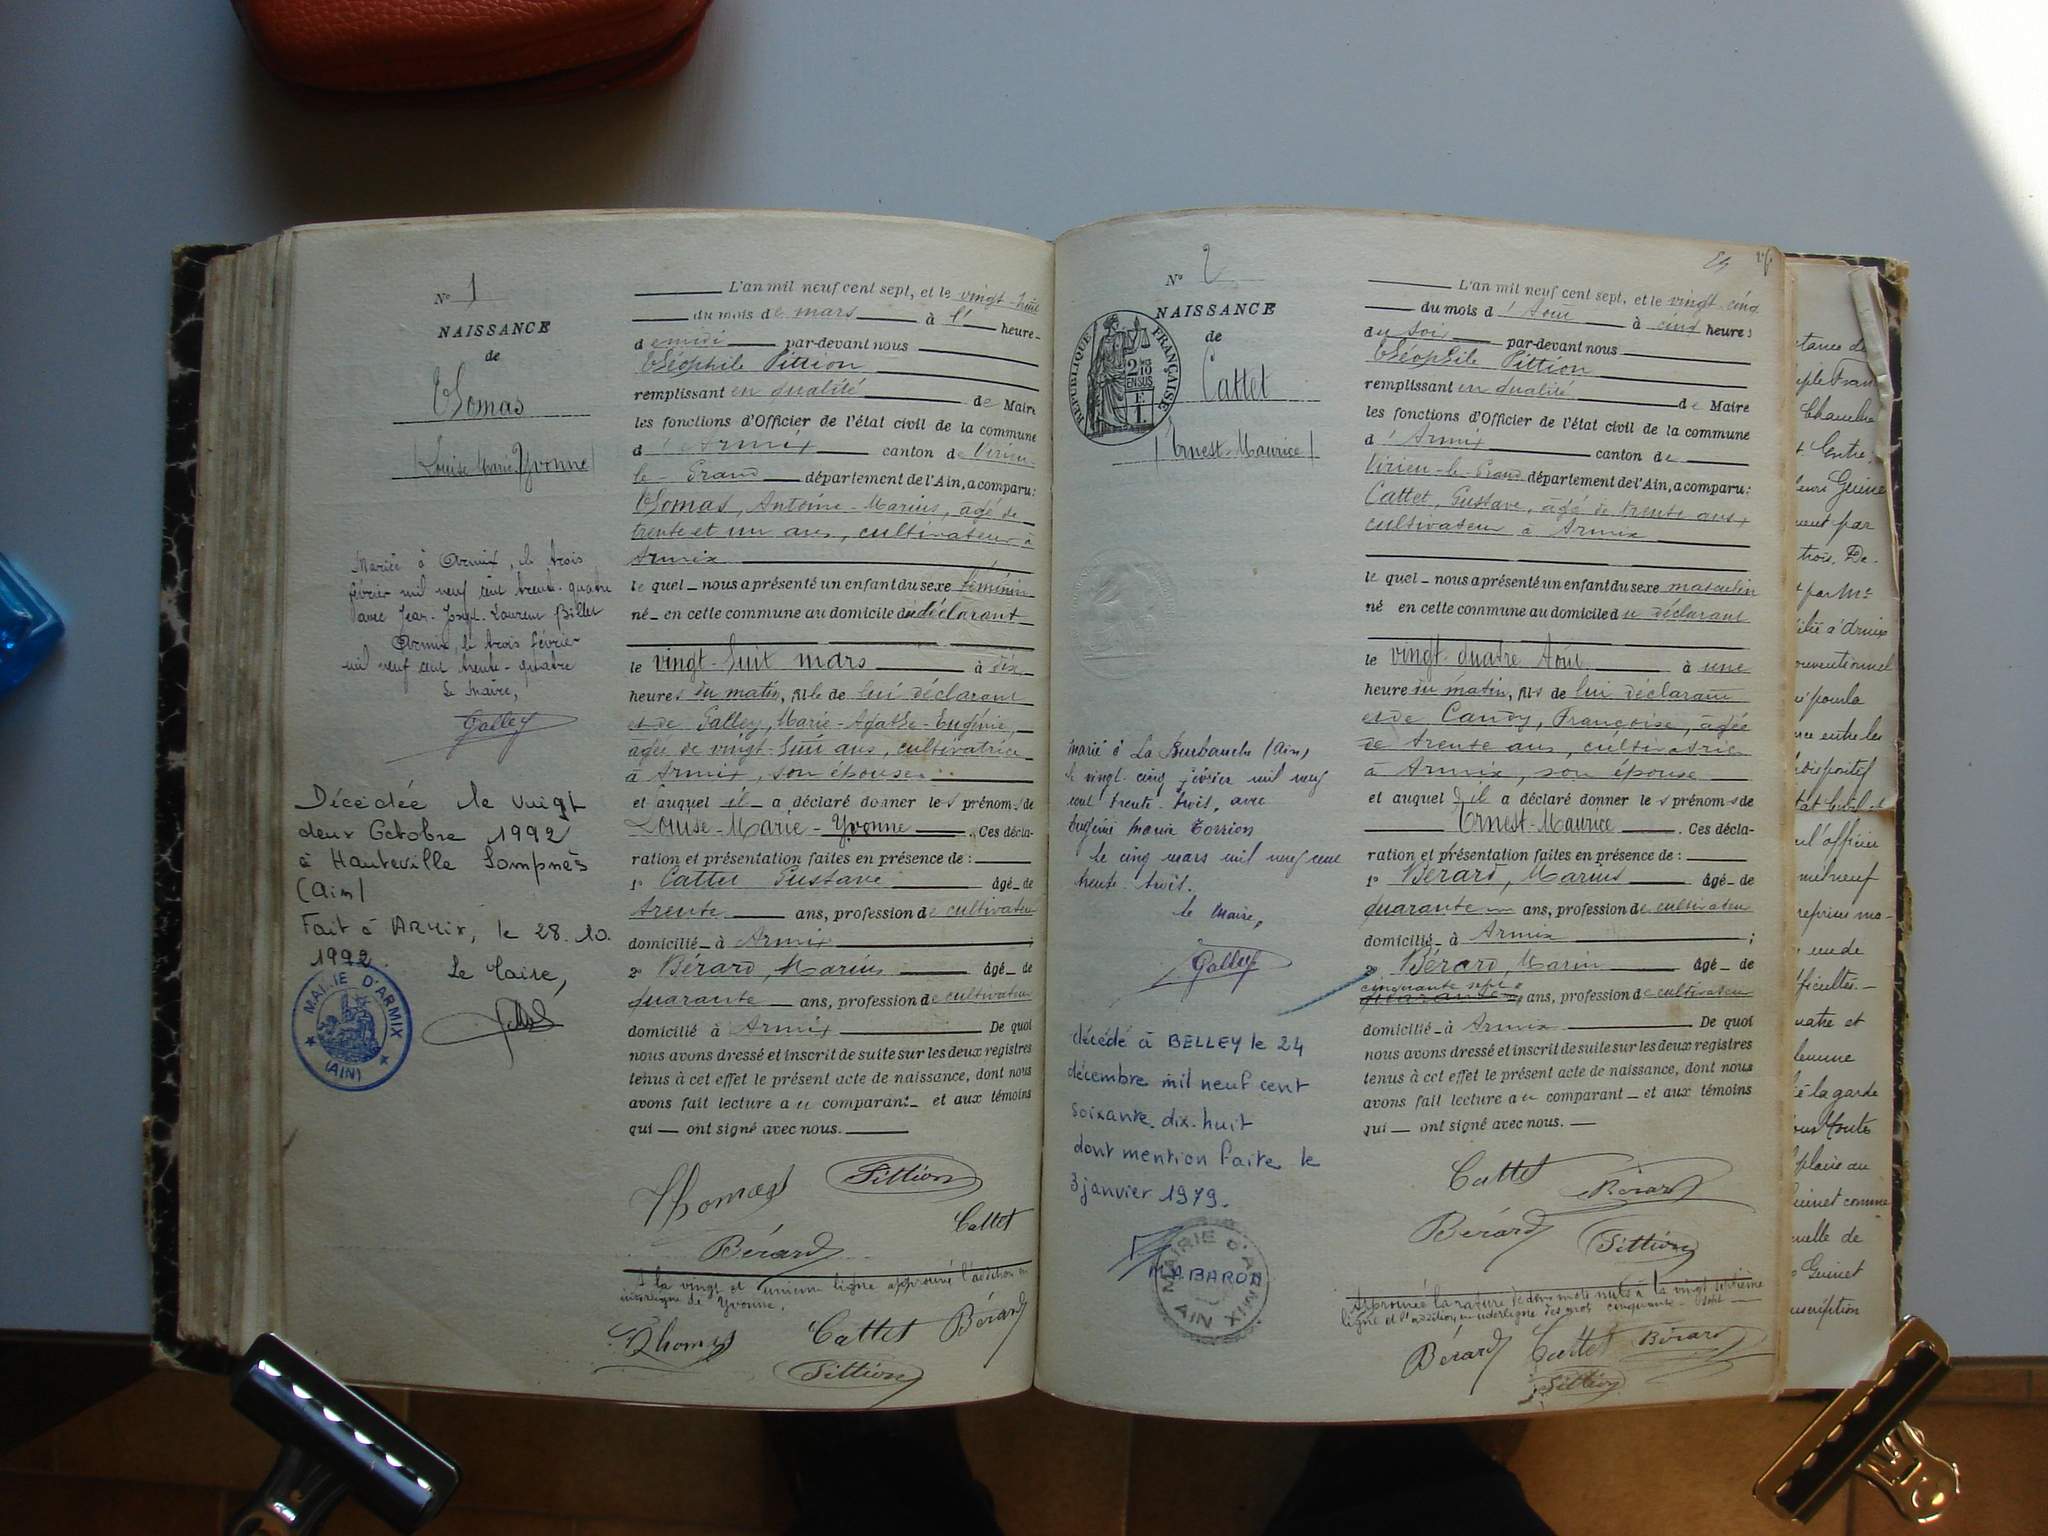 N° 1
NAISSANCE
de
Thomas
(Louise-Marie-Yvonne)
Mariée à Armix, le trois
février mil neuf cent trente-quatre
avec Jean-Joseph-Laurent Billet
Armix, le trois février
mil neuf cent trente-quatre
Le Maire,
Galley
Décédée le vingt
deux Octobre 1992
à Hauteville Lompnès
(Ain)
Fait à ARMIX, le 28.10.
1992.
Le Maire,
MAIRIE D'ARMIX
(AIN)
L'an mil neuf cent sept, et le vingt-huit
du mois de mars à l' heure
de midi par-devant nous
Théophile Pittion
remplissant en qualité de Maire
les fonctions d'Officier de l'état civil de la commune
d'Armix canton de Virieu-
le-Grand département de l'Ain, a comparu:
Thomas, Antoine-Marius, âgé de
trente et un ans, cultivateur à
Armix
lequel nous a présenté un enfant du sexe féminin
né en cette commune au domicile du déclarant
le vingt-huit mars à six
heures du matin, fille de lui déclarant
et de Galley, Marie-Agathe-Eugénie,
âgée de vingt-huit ans, cultivatrice
à Armix, son épouse
et auquel il a déclaré donner les prénoms de
Louise-Marie-Yvonne. Ces décla-
ration et présentation faites en présence de:
1° Cattet Gustave âgé de
trente ans, profession de cultivateur
domicilié à Armix;
2° Bérard, Marius âgé de
quarante ans, profession de cultivateur
domicilié à Armix De quoi
nous avons dressé et inscrit de suite sur les deux registres
tenus à cet effet le présent acte de naissance, dont nous
avons fait lecture au comparant et aux témoins
qui ont signé avec nous.
Thomas Pittion
Cattet
Bérard
A la vingt et unième ligne approuvé l'addition en
interligne de Yvonne.
Thomas Cattet Bérard
Pittion
N° 2
NAISSANCE
de
RÉPUBLIQUE FRANÇAISE
2/10 EN SUS
Cattet
(Ernest-Maurice)
marié à La Burbanche (Ain)
le vingt-cinq février mil neuf
cent trente-trois, avec
Eugénie Marie Torrion
le cinq mars mil neuf cent
trente-trois.
Le Maire,
Galley
décédé à BELLEY le 24
décembre mil neuf cent
soixante-dix-huit
dont mention faite le
3 janvier 1979.
M. A. BARON
MAIRIE D'ARMIX
AIN
L'an mil neuf cent sept, et le vingt-cinq
du mois d'Août à cinq heures
du soir par-devant nous
Théophile Pittion
remplissant en qualité de Maire
les fonctions d'Officier de l'état civil de la commune
d'Armix canton de
Virieu-le-Grand département de l'Ain, a comparu:
Cattet, Gustave, âgé de trente ans,
cultivateur à Armix
lequel nous a présenté un enfant du sexe masculin
né en cette commune au domicile du déclarant
le vingt-quatre Août à une
heure du matin, fils de lui déclarant
et de Candy, Françoise, âgée
de trente ans, cultivatrice
à Armix, son épouse
et auquel il a déclaré donner les prénoms de
Ernest-Maurice. Ces décla-
ration et présentation faites en présence de:
1° Bérard, Marius âgé de
quarante ans, profession de cultivateur
domicilié à Armix;
2° Bérard, Marin âgé de
cinquante sept
ans, profession de cultivateur
domicilié à Armix De quoi
nous avons dressé et inscrit de suite sur les deux registres
tenus à cet effet le présent acte de naissance, dont nous
avons fait lecture au comparant et aux témoins
qui ont signé avec nous.
Cattet Bérard
Bérard Pittion
Approuvée la rature de deux mots nuls à la vingt septième
ligne et l'addition en interligne des mots cinquante-sept
Bérard Cattet Bérard
Pittion